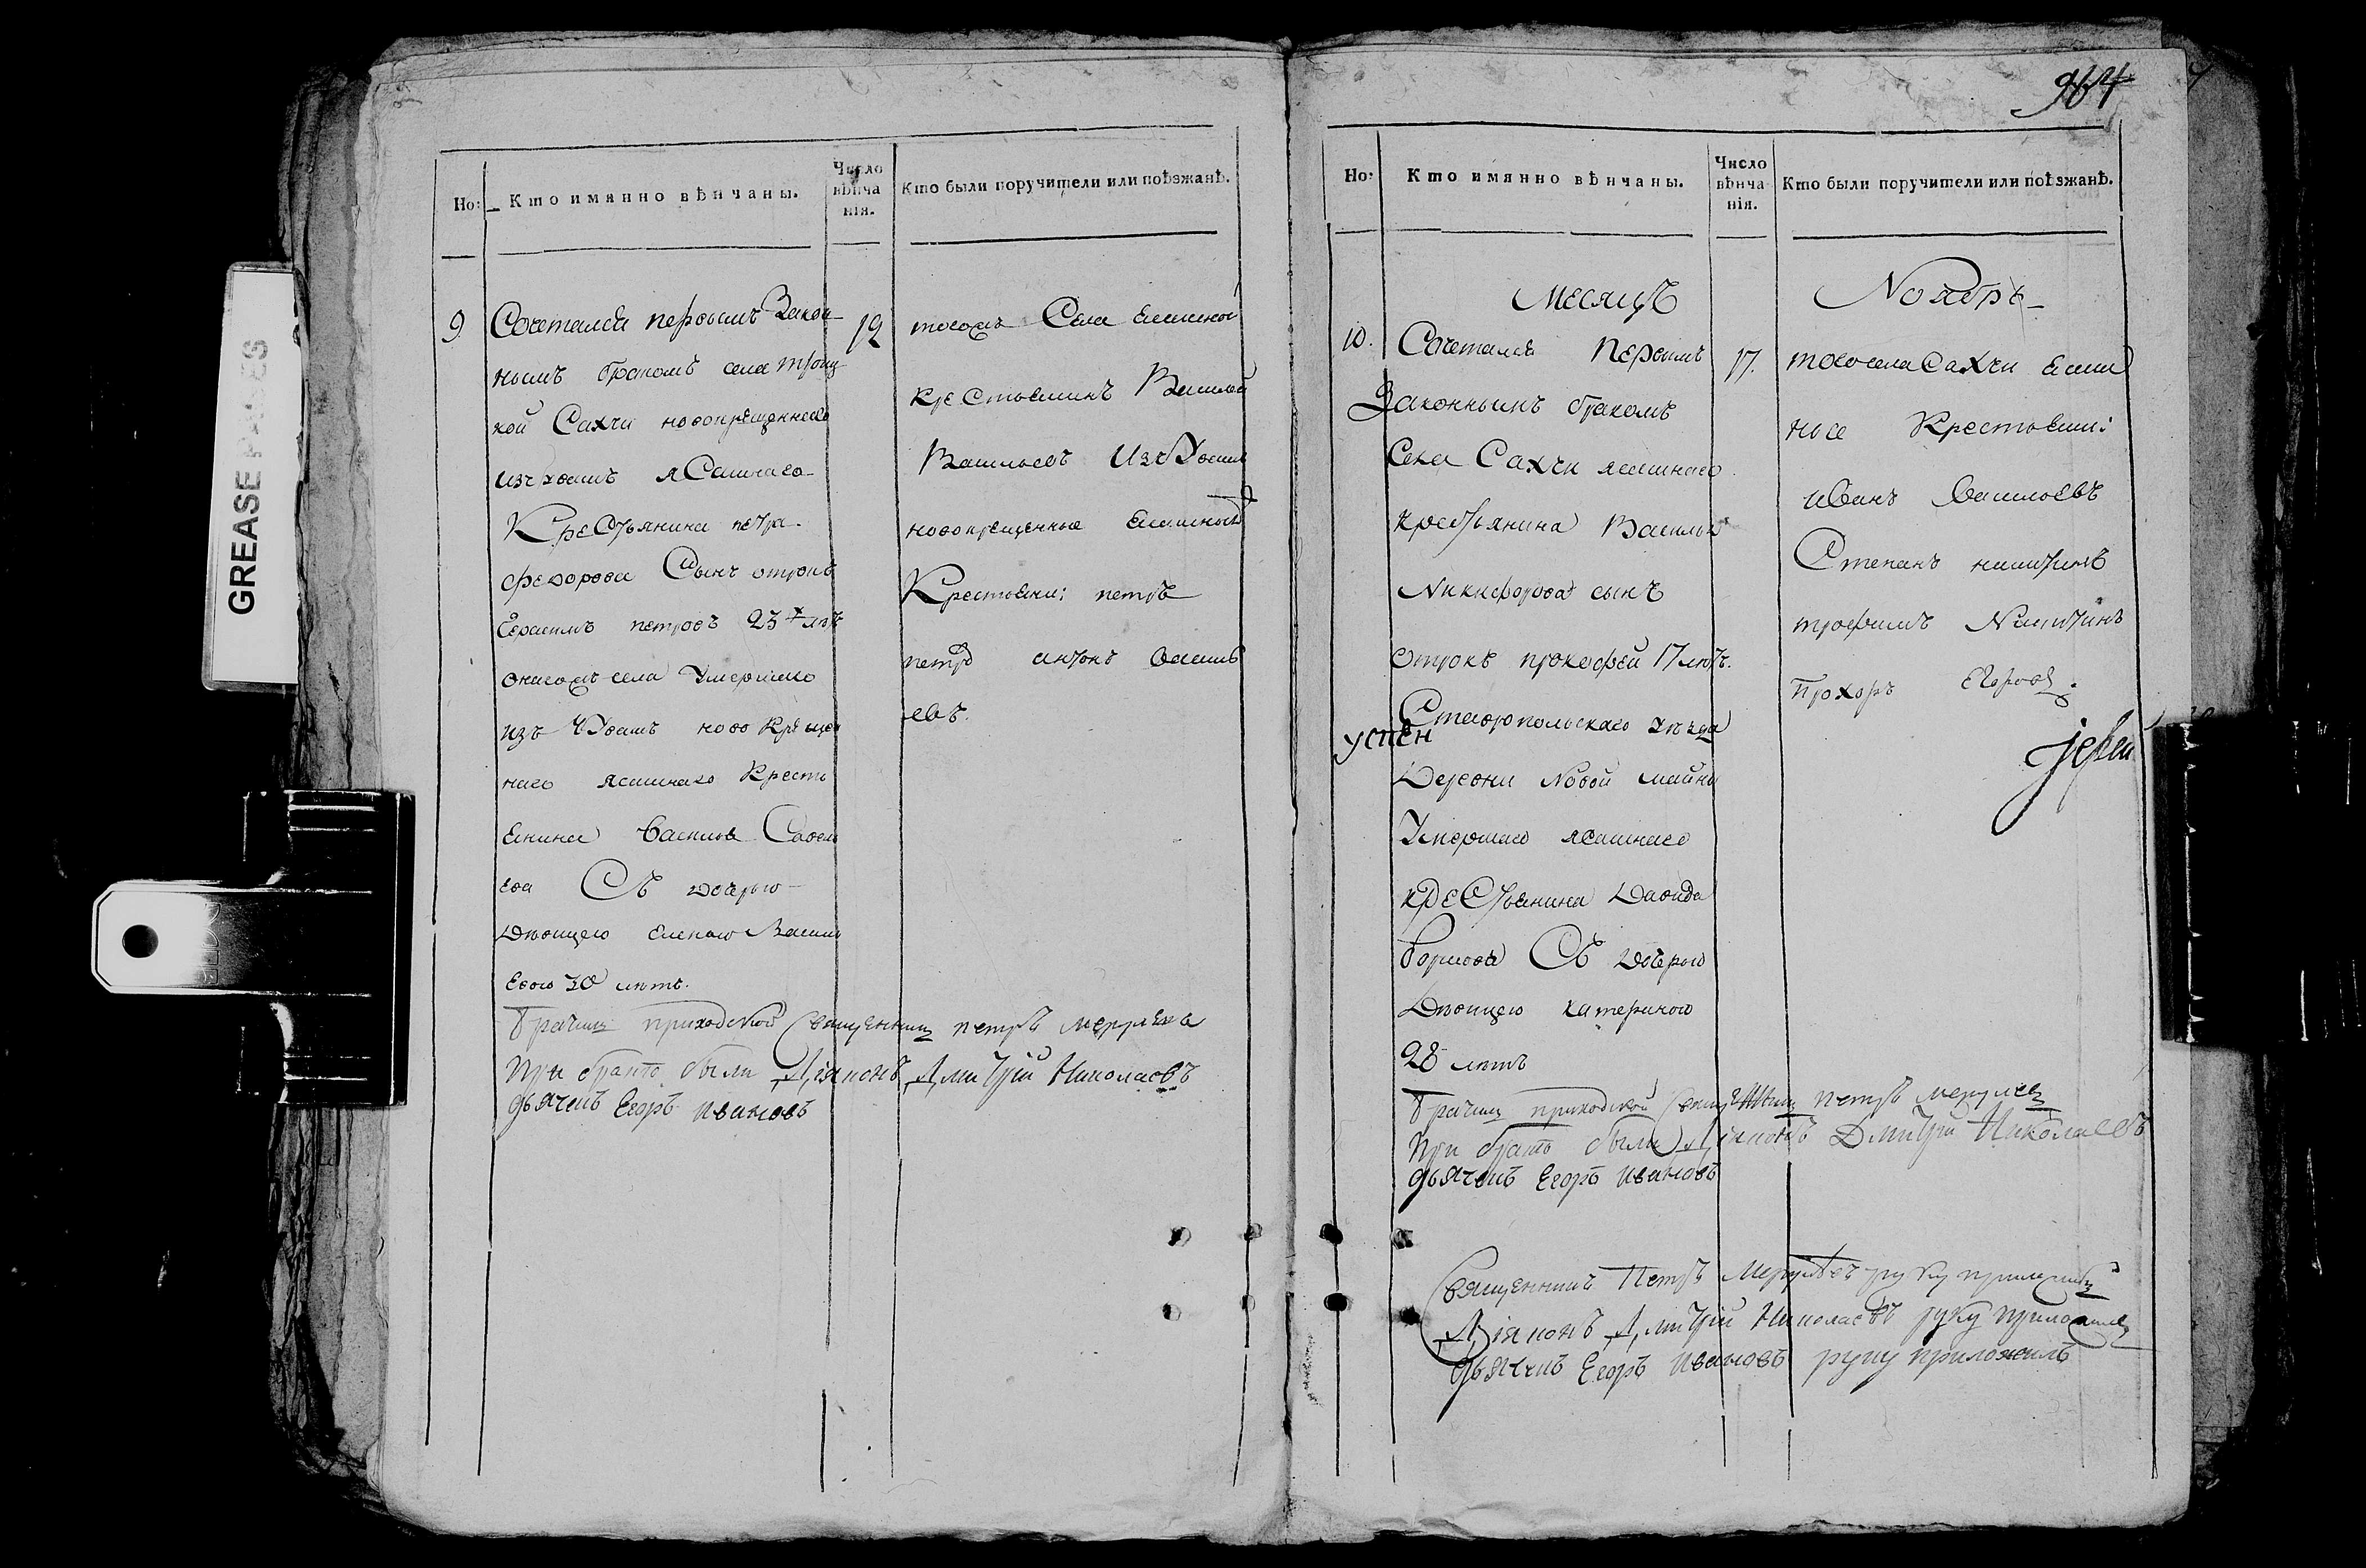 GREASE
Но:
Кто имянно вѣнчаны.
Число вѣнчанія.
Кто были поручители или поѣзжанѣ.
9
Сочетался первымъ Закон
нымъ бракомъ села троиц
кой Сахчи новокрещеннаго
изъ чювашъ ясашнаго
Крестьянина петра
федорова Сынъ отрокъ
Герасимъ петровъ 23 лѣтъ
онагожъ села Умершаго
изъ Чювашъ новокрещен
наго ясашнаго Кресть
енина василья Савель
ева Съ дочерью
Девицею еленою Василь
евою 30 лѣтъ.
12
тогожъ Села ясашной
крестьенинъ Василей
Васильевъ Изъ Чювашъ
новокрещенные ясашные
Крестьени: петръ
петровъ антонъ василь
евъ.
Брачилъ приходской Священникъ петръ
При бракѣ были Діяконъ Дмитрій Николаевъ
дьячекъ Егоръ Ивановъ
964
Но:
Кто имянно вѣнчаны.
Число вѣнчанія.
Кто были поручители или поѣзжанѣ.
Месяцъ Ноябрь
10.
Сочетался Первымъ
Законнымъ бракомъ
Села Сахчи ясашнаго
крестьянина Василья
Никифорова сынъ
отрокъ прокофей 17 лѣтъ.
Ставропольскаго уѣзда
Деревни Новой майны
Умершаго ясашнаго
крестьянина Давида
борисова Съ дочерью
Девицею катериною
28 лѣтъ
17.
того села Сахчи ясаш
ные Крестьени:
иванъ васильевъ
Степанъ никитинъ
трофимъ Никитинъ
Прохоръ Егоровъ.
успен
Брачилъ приходской Священникъ петръ
При бракѣ были Діяконъ Дмитрій Николаевъ
дьячекъ Егоръ Ивановъ
Священникъ Петръ руку приложилъ
Діяконъ Дмитрій Николаевъ руку приложилъ
дьячекъ Егоръ Ивановъ руку приложилъ